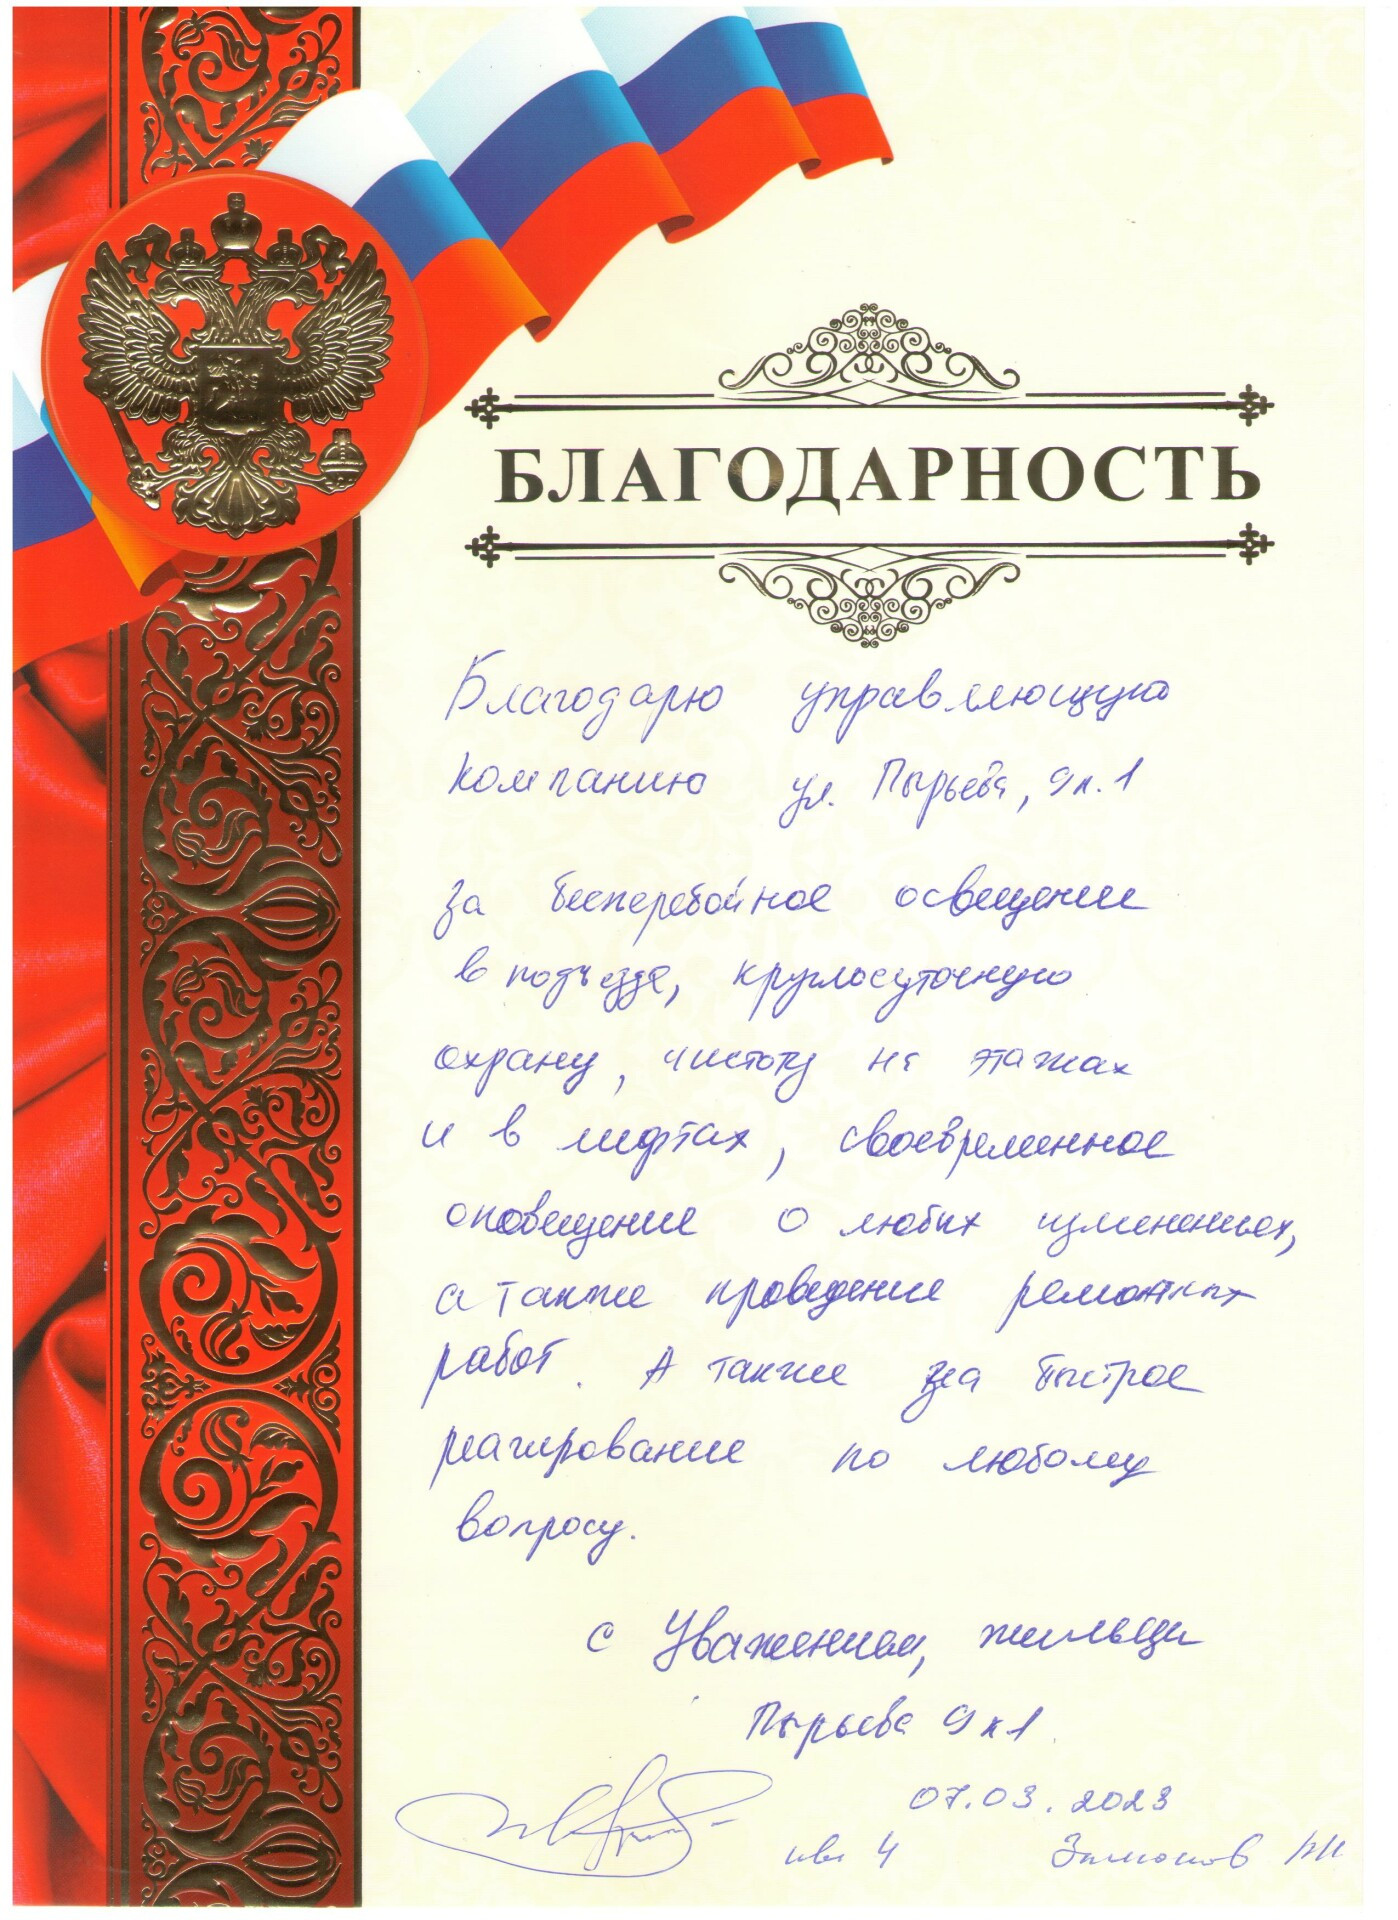 БЛАГОДАРНОСТЬ
Благодарю управляющую
компанию ул. Пырьева, 9 к. 1
за бесперебойное освещение
в подъезде, круглосуточную
охрану, чистоту на этажах
и в лифтах, своевременное
оповещение о любых изменениях,
а также проведение ремонтных
работ. А также за быстрое
реагирование по любому
вопросу.
с Уважением, жильцы
Пырьева 9 к 1
07.03.2023
кв 4